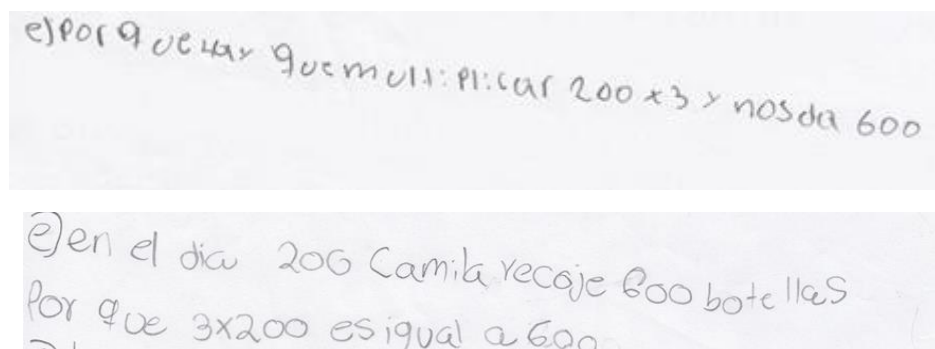 e) Por que hay que multiplicar 200 x 3 y nos da 600
e) en el dia 200 Camila recoje 600 botellas
Por que 3x200 es igual a 600